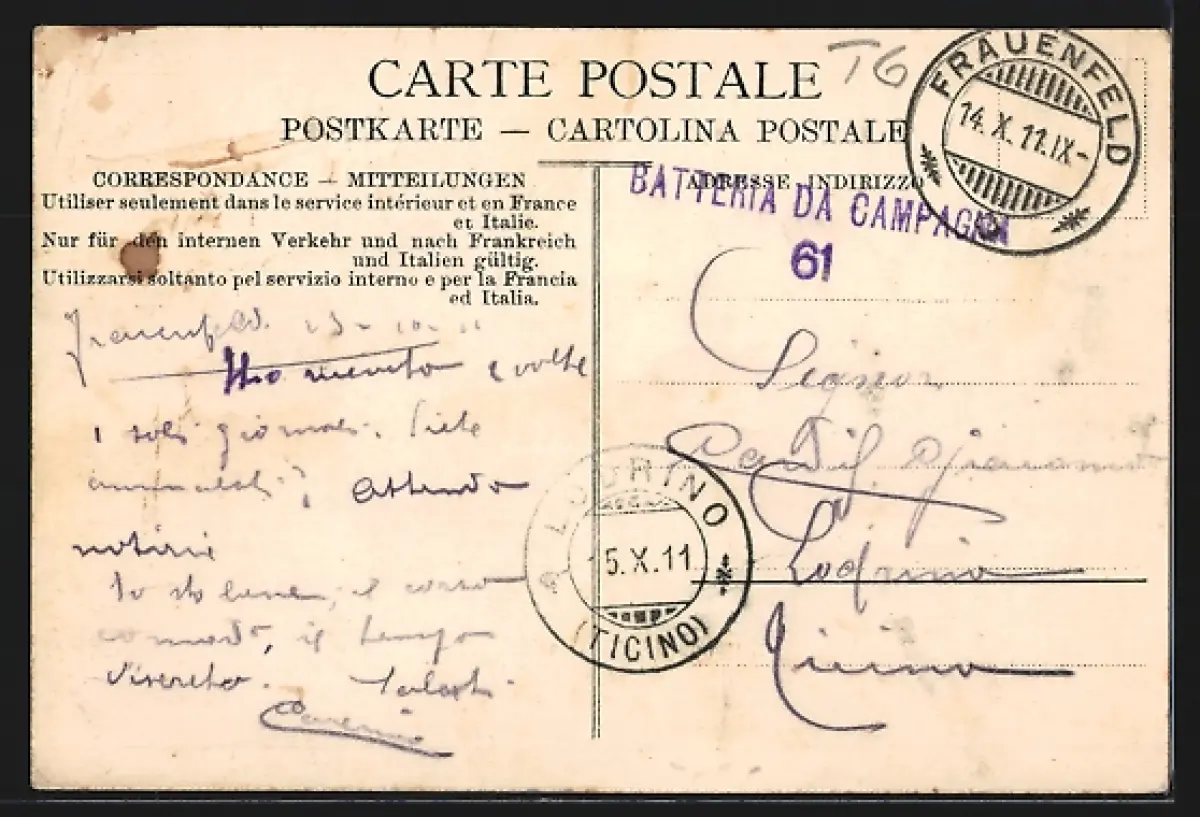 CARTE POSTALE
T6
POSTKARTE — CARTOLINA POSTALE
FRAUENFELD
14. X. 11. IX-
CORRESPONDANCE — MITTEILUNGEN
Utiliser seulement dans le service intérieur et en France
et Italie.
Nur für den internen Verkehr und nach Frankreich
und Italien gültig.
Utilizzarsi soltanto pel servizio interno e per la Francia
ed Italia.
ADRESSE - INDIRIZZO
BATTERIA DA CAMPAGNA
61
Frauenfeld
Ho
i soli giornali. Siete
ammalati? Attendo
notizie
Io sto bene, il corso
comodo, il tempo
discreto. Saluti
Signor
Lodrino
Ticino
LODRINO
15.X.11
(TICINO)